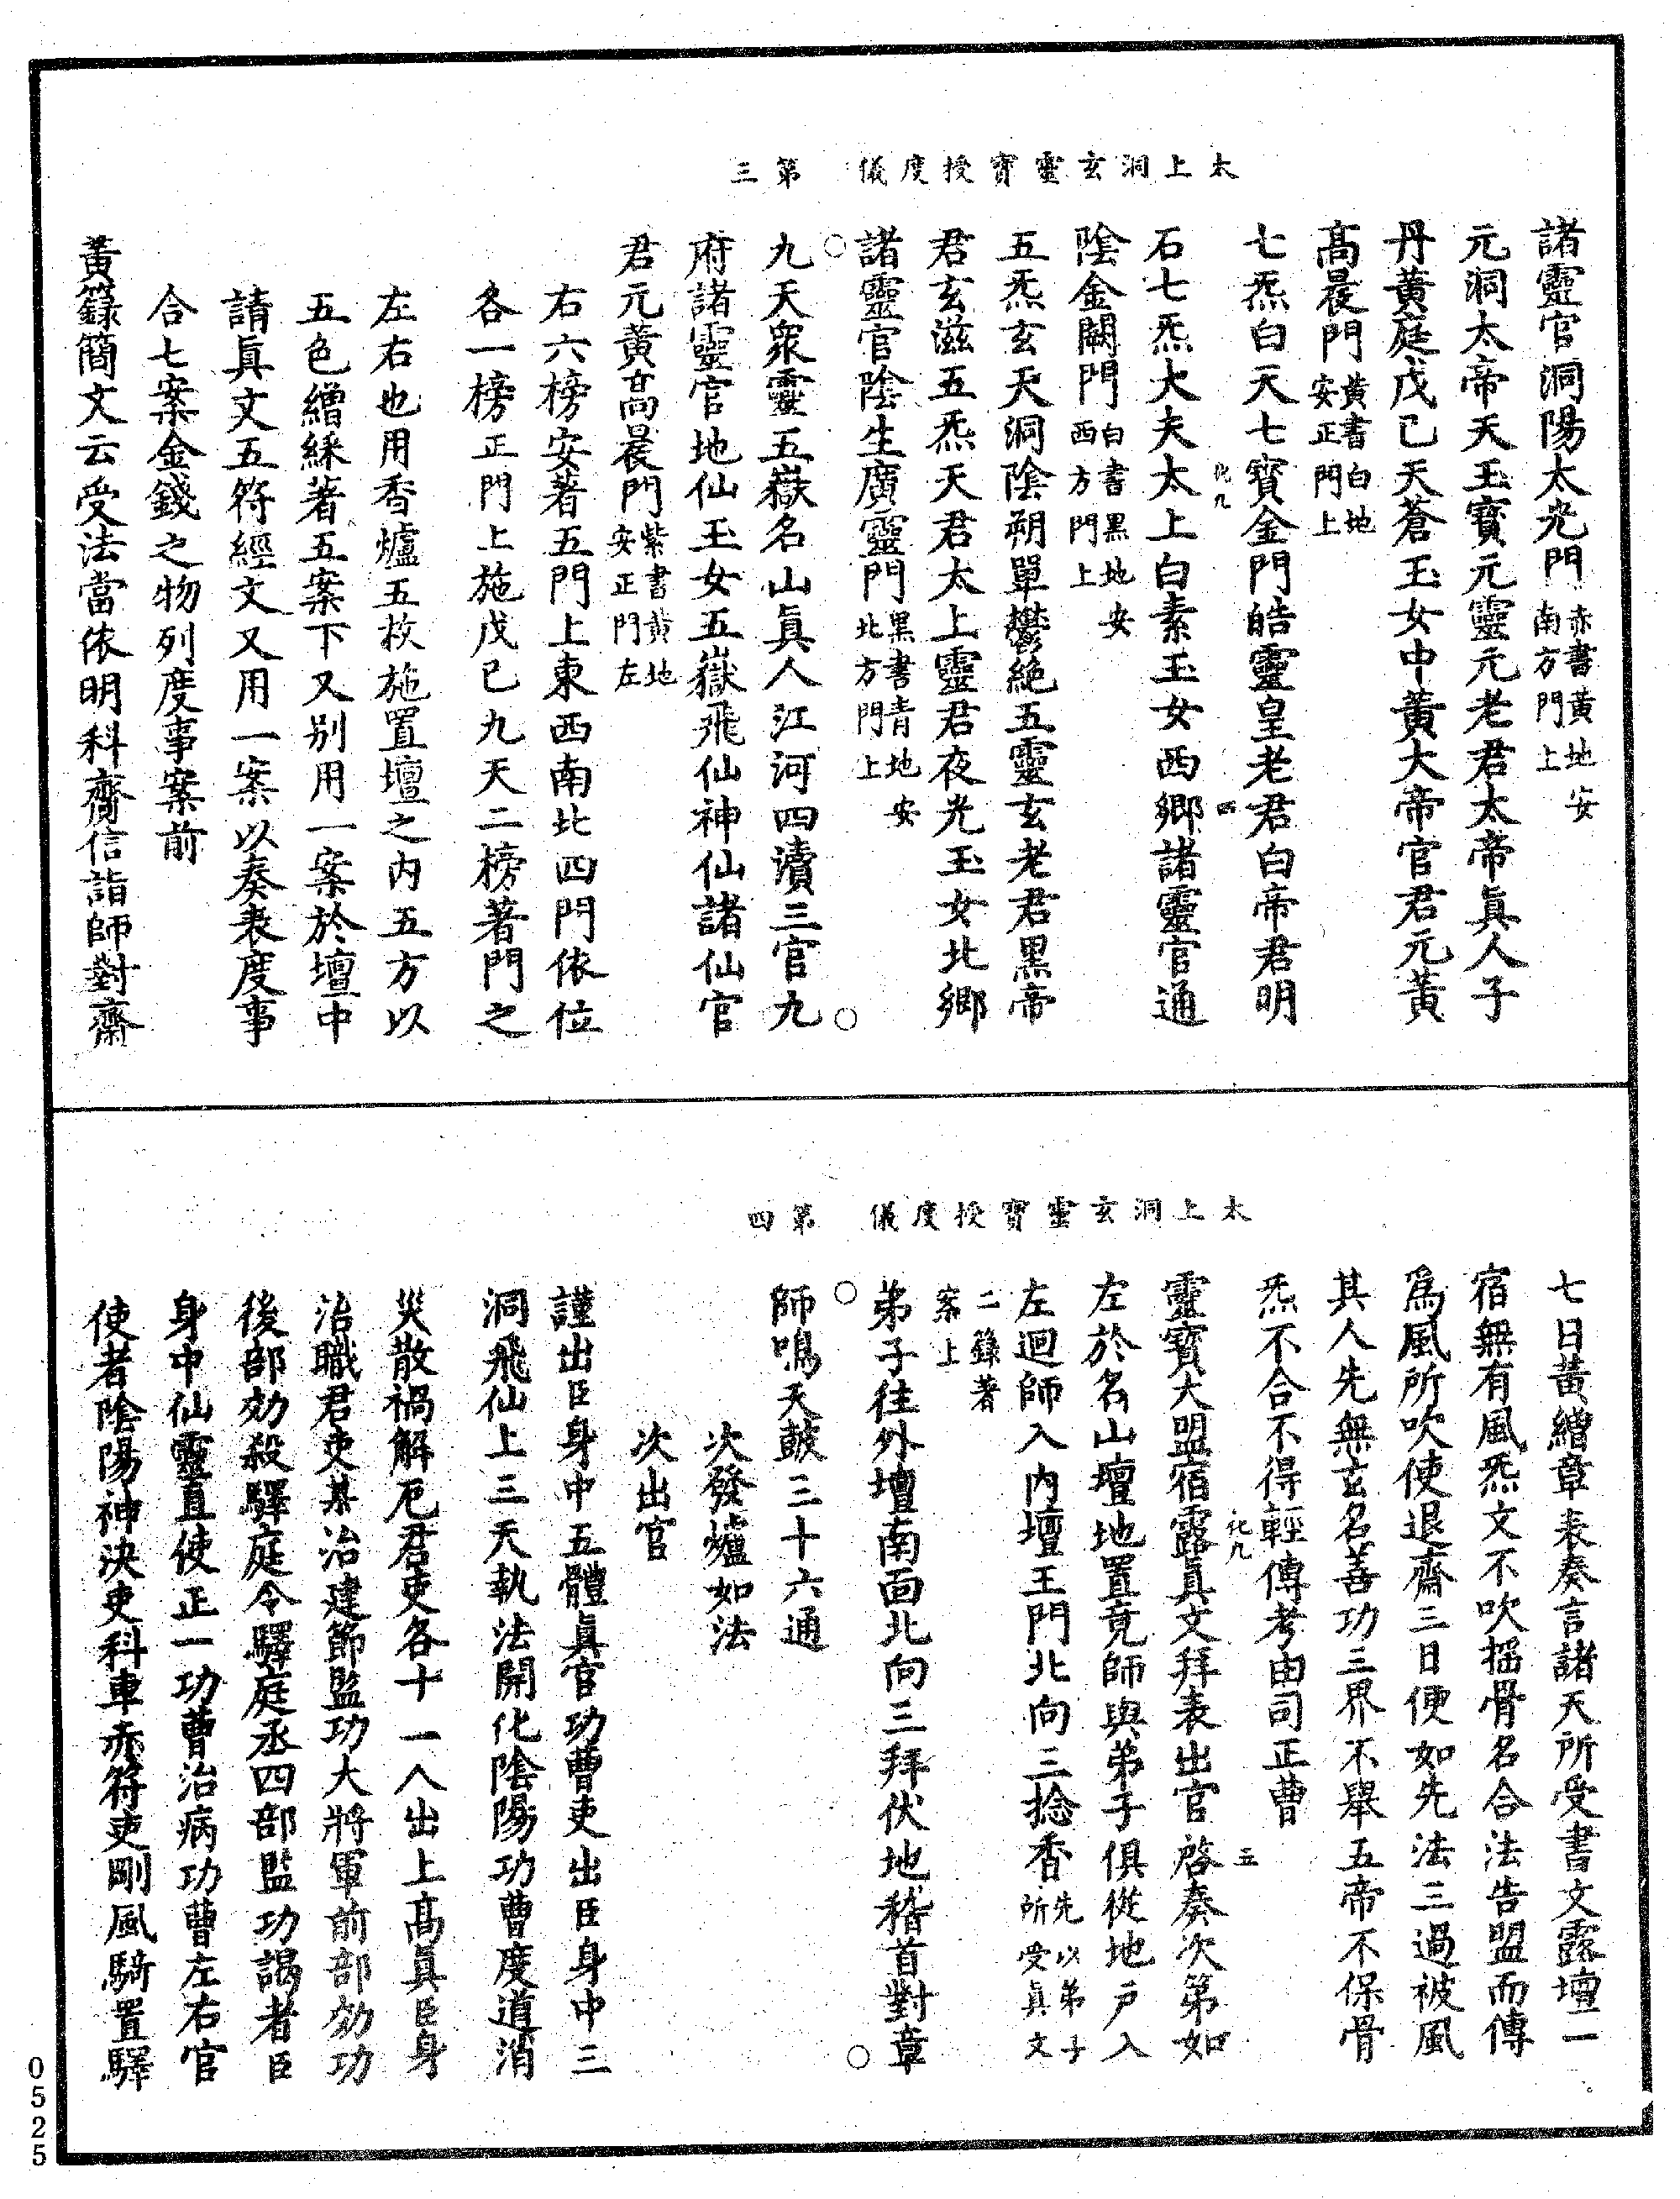 太上洞玄靈寶授度儀 第三
諸靈官洞陽太光門赤書黃地安南方門上
元洞太帝天玉寶元靈元老君太帝眞人子
丹黃庭戊己天蒼玉女中黃大帝官君元黃
高晨門黃書白地安正門上
七炁白天七寶金門皓靈皇老君白帝君明
化九 四
石七炁大夫太上白素玉女西鄉諸靈官通
陰金闕門白書黑地安西方門上
五炁玄天洞陰朔單鬱絶五靈玄老君黑帝
君玄滋五炁天君太上靈君夜光玉女北鄉
諸靈官陰生廣靈門黑書青地安北方門上
九天衆靈五嶽名山眞人江河四瀆三官九
府諸靈官地仙玉女五嶽飛仙神仙諸仙官
君元黃高晨門紫書黃地安正門左
右六榜安著五門上東西南北四門依位
各一榜正門上施戊己九天二榜著門之
左右也用香爐五枚施置壇之内五方以
五色繒綵著五案下又别用一案於壇中
請眞文五符經文又用一案以奏表度事
合七案金錢之物列度事案前
黃籙簡文云受法當依明科齋信詣師對齋
太上洞玄靈寶授度儀 第四
七日黃繒章表奏言諸天所受書文露壇一
宿無有風炁文不吹揺骨名合法告盟而傳
爲風所吹使退齋三日便如先法三過被風
其人先無玄名善功三界不舉五帝不保骨
炁不合不得輕傳考由司正曹
化九 五
靈寶大盟宿露眞文拜表出官啓奏次第如
左於名山壇地置竟師與弟子俱從地户入
左迴師入内壇王門北向三捻香先以弟子所受眞文
二籙著案上
弟子往外壇南面北向三拜伏地稽首對章
師鳴天鼓三十六通
次發爐如法
次出官
謹出臣身中五體眞官功曹吏出臣身中三
洞飛仙上三天執法開化陰陽功曹度道消
災散禍解厄君吏各十一人出上高眞臣身
治職君吏某治建節監功大將軍前部効功
後部効殺驛庭令驛庭丞四部監功謁者臣
身中仙靈直使正一功曹治病功曹左右官
使者陰陽神決吏科車赤符吏剛風騎置驛
0525